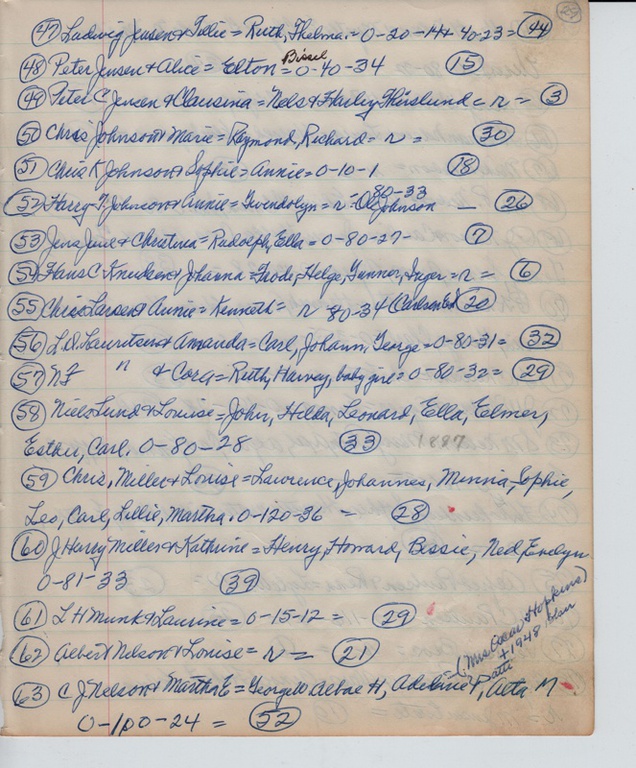 (47) Ludwig Jensen & Tillie = Ruth, Thelma. = 0-20-14 + 40-23 = (44)
Bissel
(48) Peter Jensen & Alice = Elton = 0-40-34 (15)
(49) Peter C Jensen & Clausina = Nels & Harley Thirslund = r = (3)
(50) Chris Johnson & Marie = Raymond, Richard = r = (30)
(51) Chris K Johnson & Sophie = Annie = 0-10-1 (18)
- 80-33
(52) Harry T. Johnson & Annie = Gwendolyn = r - Ol Johnson — (26)
(53) Jens Juul & Christina = Rudolph, Ella = 0-80-27- (7)
(54) Hans C Knudsen & Johanna = Frode, Helge, Gunner, Inger = r = (6)
(55) Chris Larsen & Annie = Kenneth = r 80-34 (Carlson Est) (20)
(56) L.D. Lauritsen & Amanda = Carl, Johann, George = 0-80-31 = (32)
(57) N F " & Cora = Ruth, Harvey, baby girl = 0-80-32 = (29)
(58) Niels Lund & Louise = John, Hilda, Leonard, Ella, Elmer,
Esther, Carl. 0-80-28 (33) 1897
(59) Chris, Miller & Louise = Lawrence, Johannes, Minnie, Sophie,
Leo, Carl, Lillie, Martha. 0-120-36 = (28)
(60) J Harry Miller & Kathrine = Henry, Howard, Bissie, Ned, Evelyn
0-81-33 (39)
(61) L H Munk & Laurine = 0-15-12 = (29)
(62) Albert Nelson & Louise = r = (21)
(Mrs Oscar Hopkins)
+ 1948 Blair
(63) C J Nelson & Martha E = George W Albae H, Adeline P, Alta M
0-100-24 = (52)